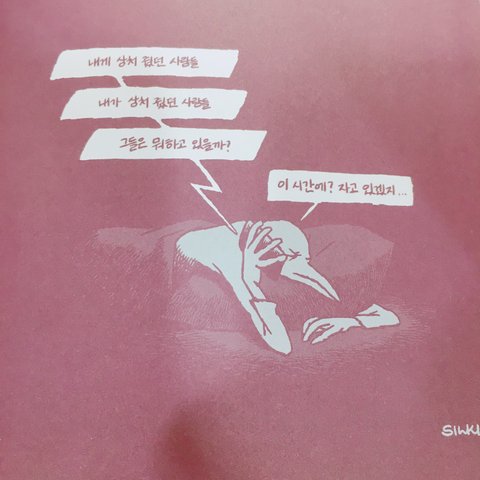 내게 상처 줬던 사람들
내가 상처 줬던 사람들
그들은 뭐하고 있을까?
이 시간에? 자고 있겠지...